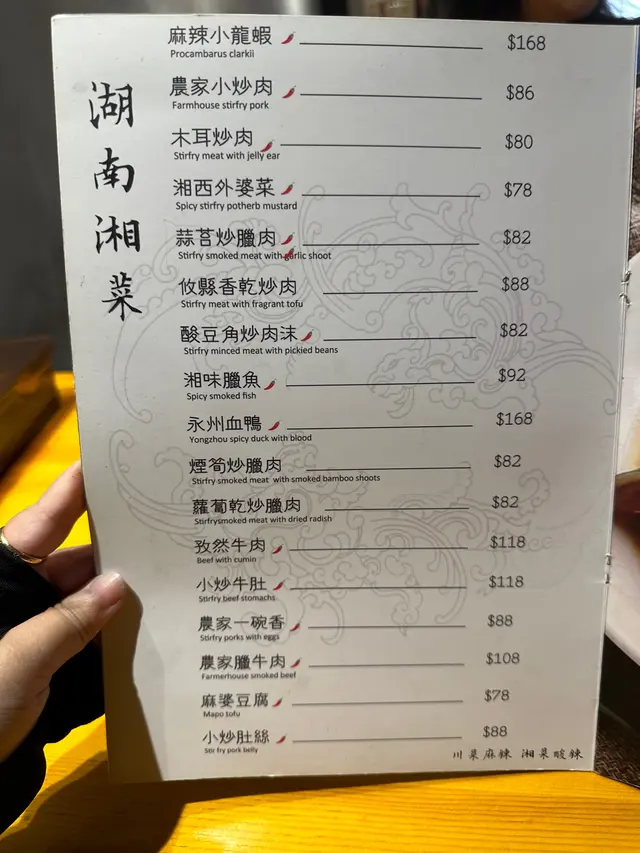 湖南湘菜
麻辣小龍蝦 $168
Procambarus clarkii
農家小炒肉 $86
Farmhouse stirfry pork
木耳炒肉 $80
Stirfry meat with jelly ear
湘西外婆菜 $78
Spicy stirfry potherb mustard
蒜苔炒臘肉 $82
Stirfry smoked meat with garlic shoot
攸縣香乾炒肉 $88
Stirfry meat with fragrant tofu
酸豆角炒肉沫 $82
Stirfry minced meat with pickied beans
湘味臘魚 $92
Spicy smoked fish
永州血鴨 $168
Yongzhou spicy duck with blood
煙筍炒臘肉 $82
Stirfry smoked meat with smoked bamboo shoots
蘿蔔乾炒臘肉 $82
Stirfrysmoked meat with dried radish
孜然牛肉 $118
Beef with cumin
小炒牛肚 $118
Stirfry beef stomachs
農家一碗香 $88
Stirfry porks with eggs
農家臘牛肉 $108
Farmerhouse smoked beef
麻婆豆腐 $78
Mapo tofu
小炒肚絲 $88
Stir fry pork belly
川菜麻辣 湘菜酸辣